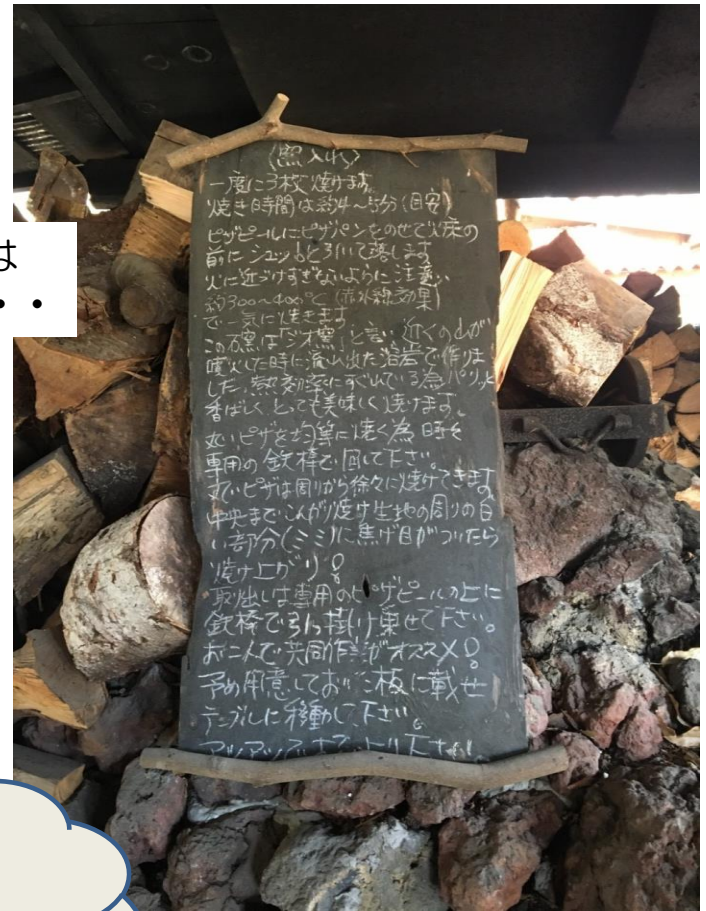 は
・・
一度に3枚焼けます。
焼き時間は約4~5分(目安)
ピザピールにピザパンをのせて火床の
前にシュッ!と引いて落します
火に近づけすぎないように注意!
約300~400℃(赤外線効果)
で一気に焼きます
この窯は「ジオ窯」と言い、近くの山が
噴火した時に流れ出た溶岩で作りま
した。熱効率にすぐれている為パリッと
香ばしくとっても美味しく焼けます。
丸いピザを均等に焼く為時々
専用の鉄棒で回して下さい。
丸いピザは周りから徐々に焼けてきます。
中央までこんがり焼け生地の周りの白
い部分(ミミ)に焦げ目がついたら
焼け上がり!
取出しは専用のピザピールの上に
鉄棒で引っ掛け乗せて下さい。
お二人で共同作業がオススメ!
予め用意しておいた板に載せ
テーブルに移動して下さい。
アツアツ